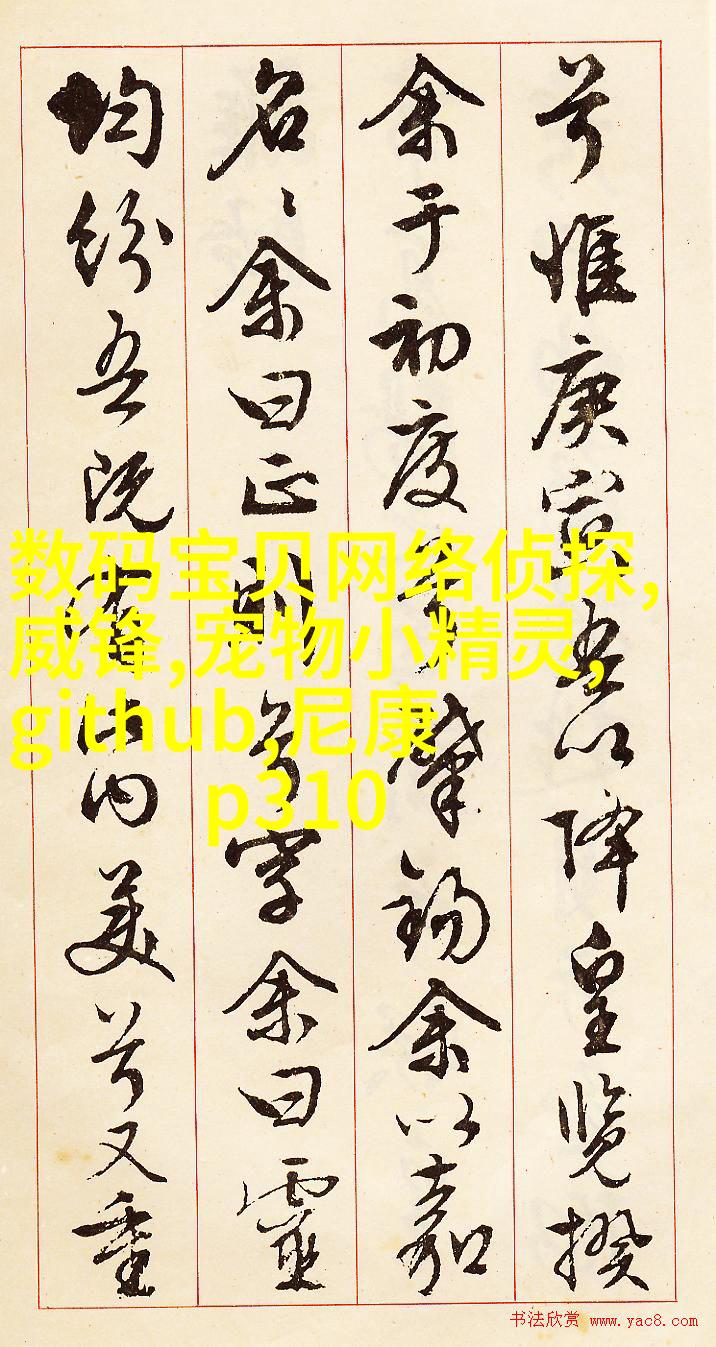 兮惟庚寅吾以降皇覽揆
余于初度兮肇錫余以嘉
名〻余曰正則兮字余曰靈
均紛吾既有此内美兮又重
数码宝贝网络侦探,
威锋,宠物小精灵,
github,尼康
p310
书法欣赏 www.yac8.com